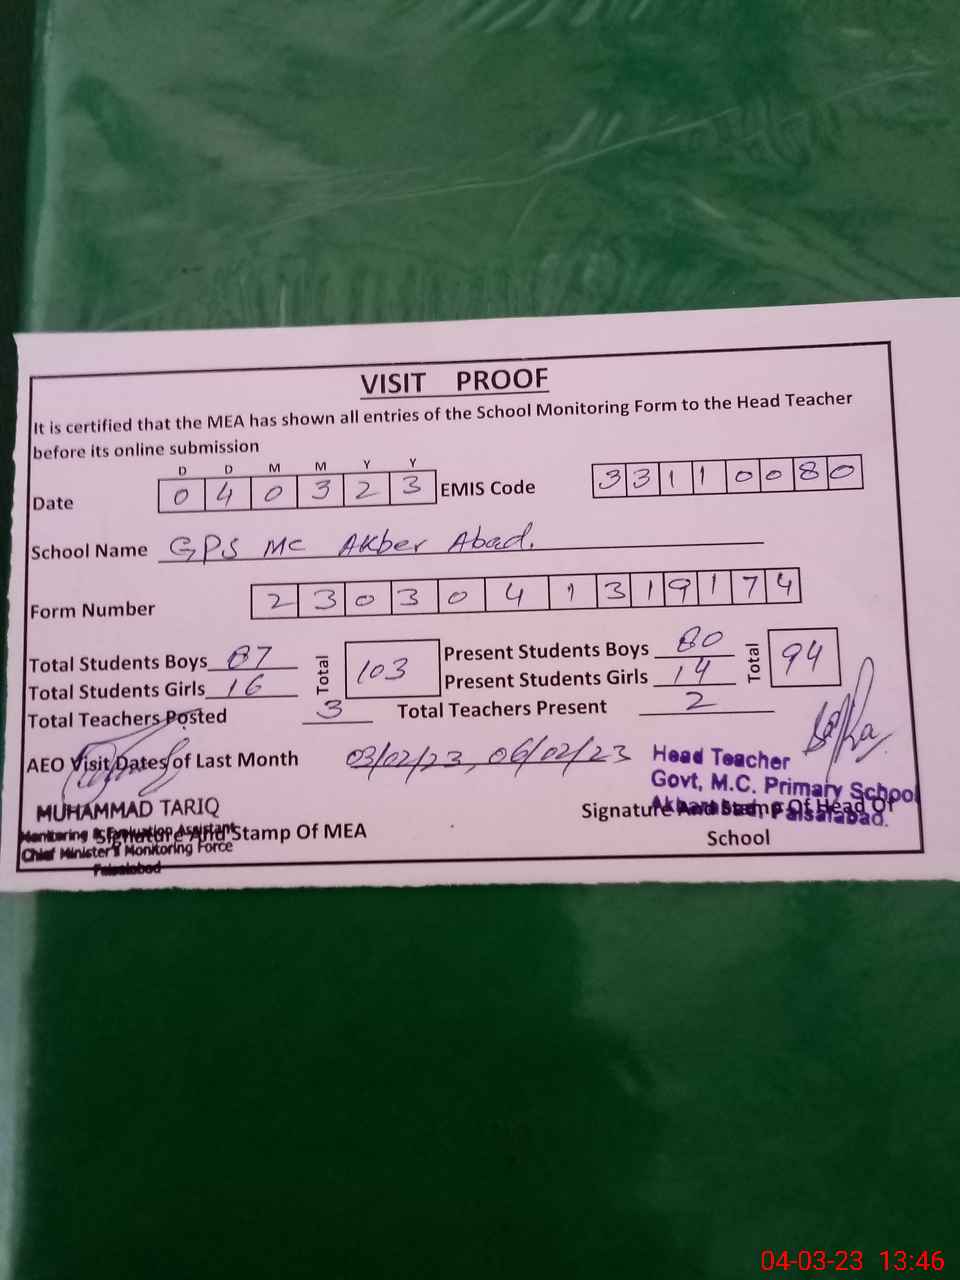 VISIT PROOF
It is certified that the MEA has shown all entries of the School Monitoring Form to the Head Teacher
before its online submission
D D M M Y Y
Date 0 4 0 3 2 3 EMIS Code 3 3 1 1 0 0 8 0
School Name GPS MC Akber Abad.
Form Number 2 3 0 3 0 4 1 3 1 9 1 7 4
Total Students Boys 87 Total 103 Present Students Boys 80 Total 94
Total Students Girls 16 Present Students Girls 14
Total Teachers Posted 3 Total Teachers Present 2
AEO Visit Dates of Last Month 03/02/23, 06/02/23
Head Teacher
Govt, M.C. Primary School
Faisalabad.
MUHAMMAD TARIQ
Monitoring & Evaluation Assistant
Chief Minister's Monitoring Force
Faisalabad
Signature And Stamp Of MEA
Signature And Stamp Of Head Of
School
04-03-23 13:46